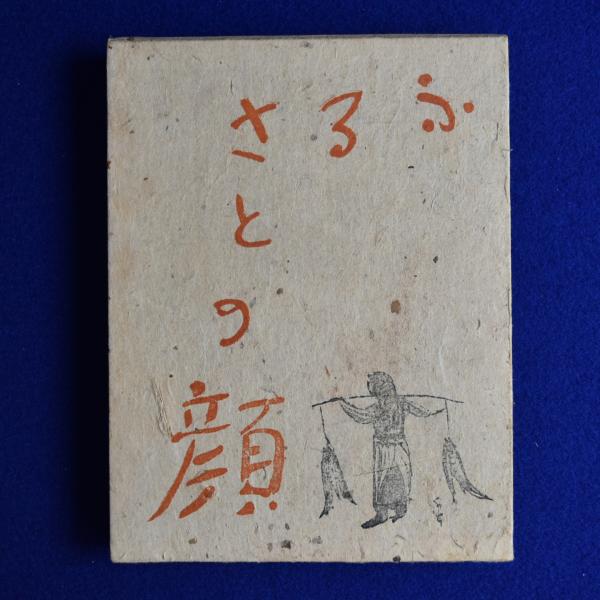 ふるさとの顔